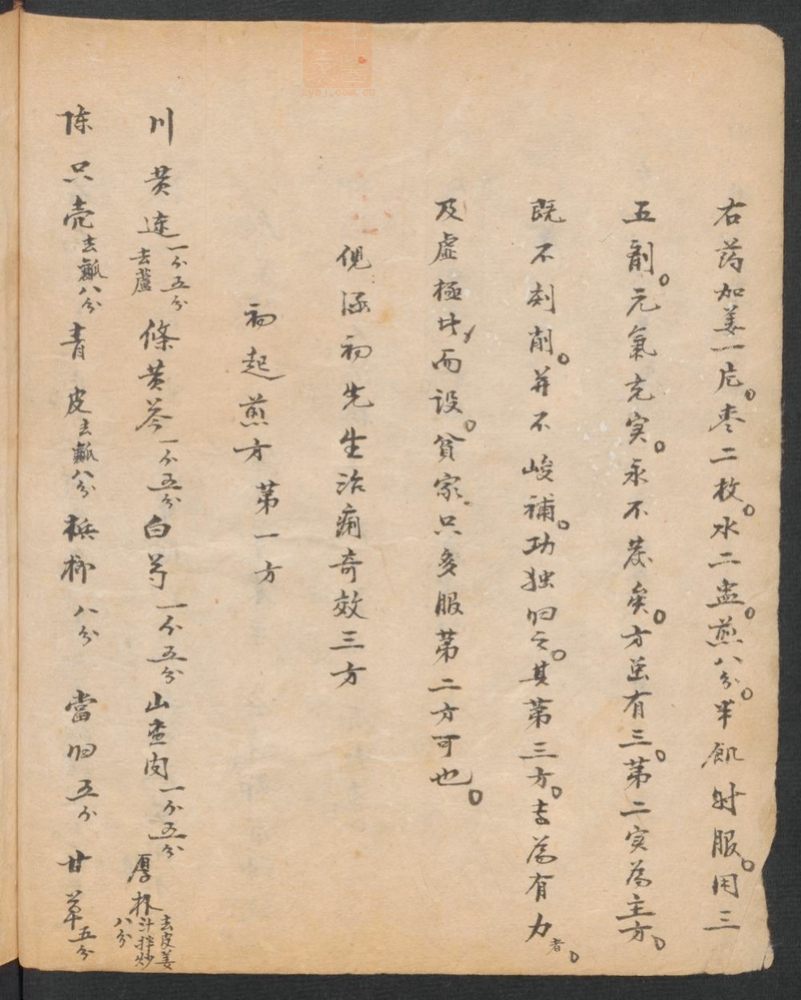 右药加姜一片。枣二枚。水二盅。煎八分。半飢时服。用三
五剤。元氣充实。永不茷矣。方虽有三。第二实為主方。
既不刻削。并不峻補。功独归之。其第三方。專為有力者。
及虚極者而设。貧家只多服第二方可也。
倪涵初先生治痢奇效三方
初起煎方第一方
川黄连一个五分去蘆 條黄芩一个五分 白芍一个五分 山查肉一个五分 厚朴去皮姜汁拌炒八分
陈只壳去瓤八分 青皮去瓤八分 槟榔八分 當归五分 甘草五分